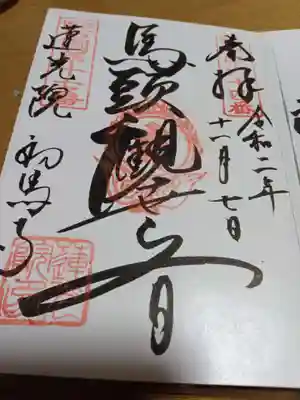 奉拝
令和二年
十一月七日
馬頭観世音
蓮光院
初馬寺